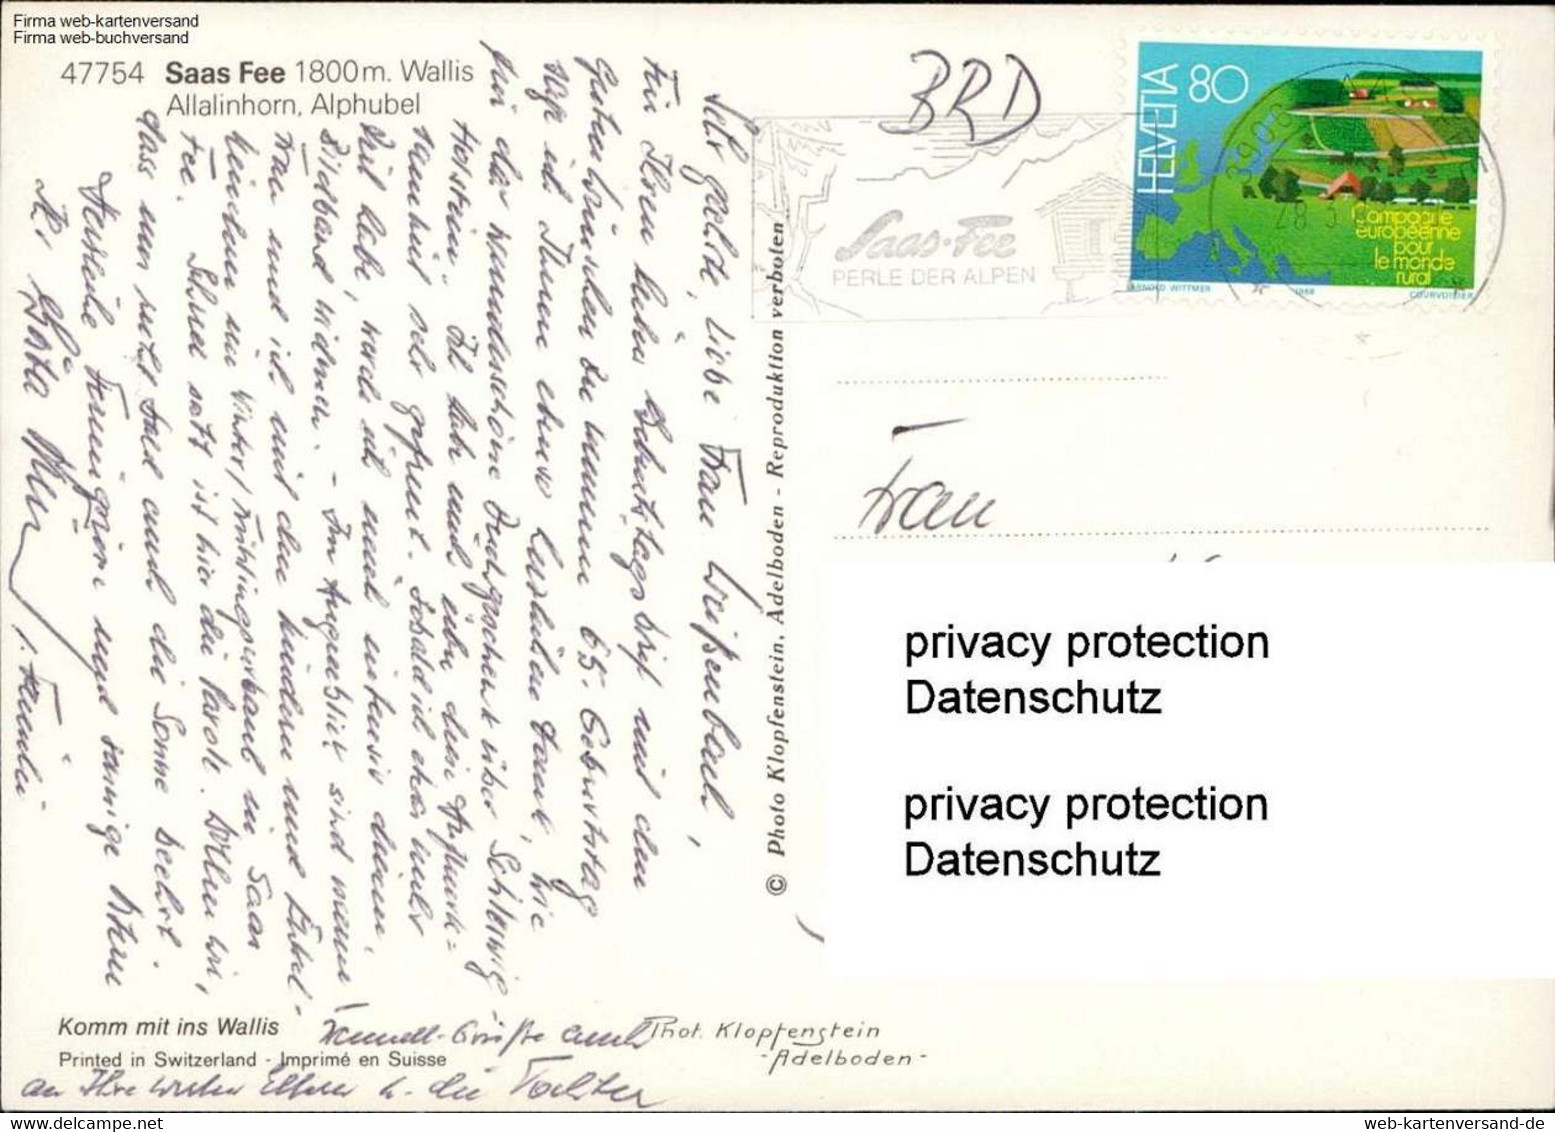 Firma web-kartenversand
Firma web-buchversand
47754 Saas Fee 1800m. Wallis
Allalinhorn, Alphubel
BRD
HELVETIA 80
Campagne
européenne
pour
le monde
rural
ARNOLD WITTMER 1988 COURVOISIER
Saas-Fee
PERLE DER ALPEN
Sehr geehrte, liebe Frau Weißenbach,
Für Ihren lieben Geburtstagsbrief mit den
Guten Wünschen zu meinem 65. Geburtstag
sage ich Ihnen einen herzlichen Dank, wie
für das wunderschöne Buchgeschenk über Schleswig
Holstein. Ich habe mich über diese Aufmerk=
samkeit sehr gefreut. Sobald ich etwas mehr
Zeit habe, werde ich mich intensiv diesem
Bildband widmen. - Im Augenblick sind meine
Frau und ich mit den Kindern und Enkel-
kindern im Winter/Frühlingsurlaub in Saas
Fee. Schnee satt ist hier die Parole. Wollen wir,
dass uns recht bald auch die Sonne beehrt.
Herzliche Feriengrüße und sonnige
Ihr
u. Familie
© Photo Klopfenstein, Adelboden - Reproduktion verboten
Frau
privacy protection
Datenschutz
privacy protection
Datenschutz
Komm mit ins Wallis
Printed in Switzerland - Imprimé en Suisse
Grüße auch
an Ihre Eltern u. die Tochter
Phot. Klopfenstein
-Adelboden-
www-web-kartenversand-de